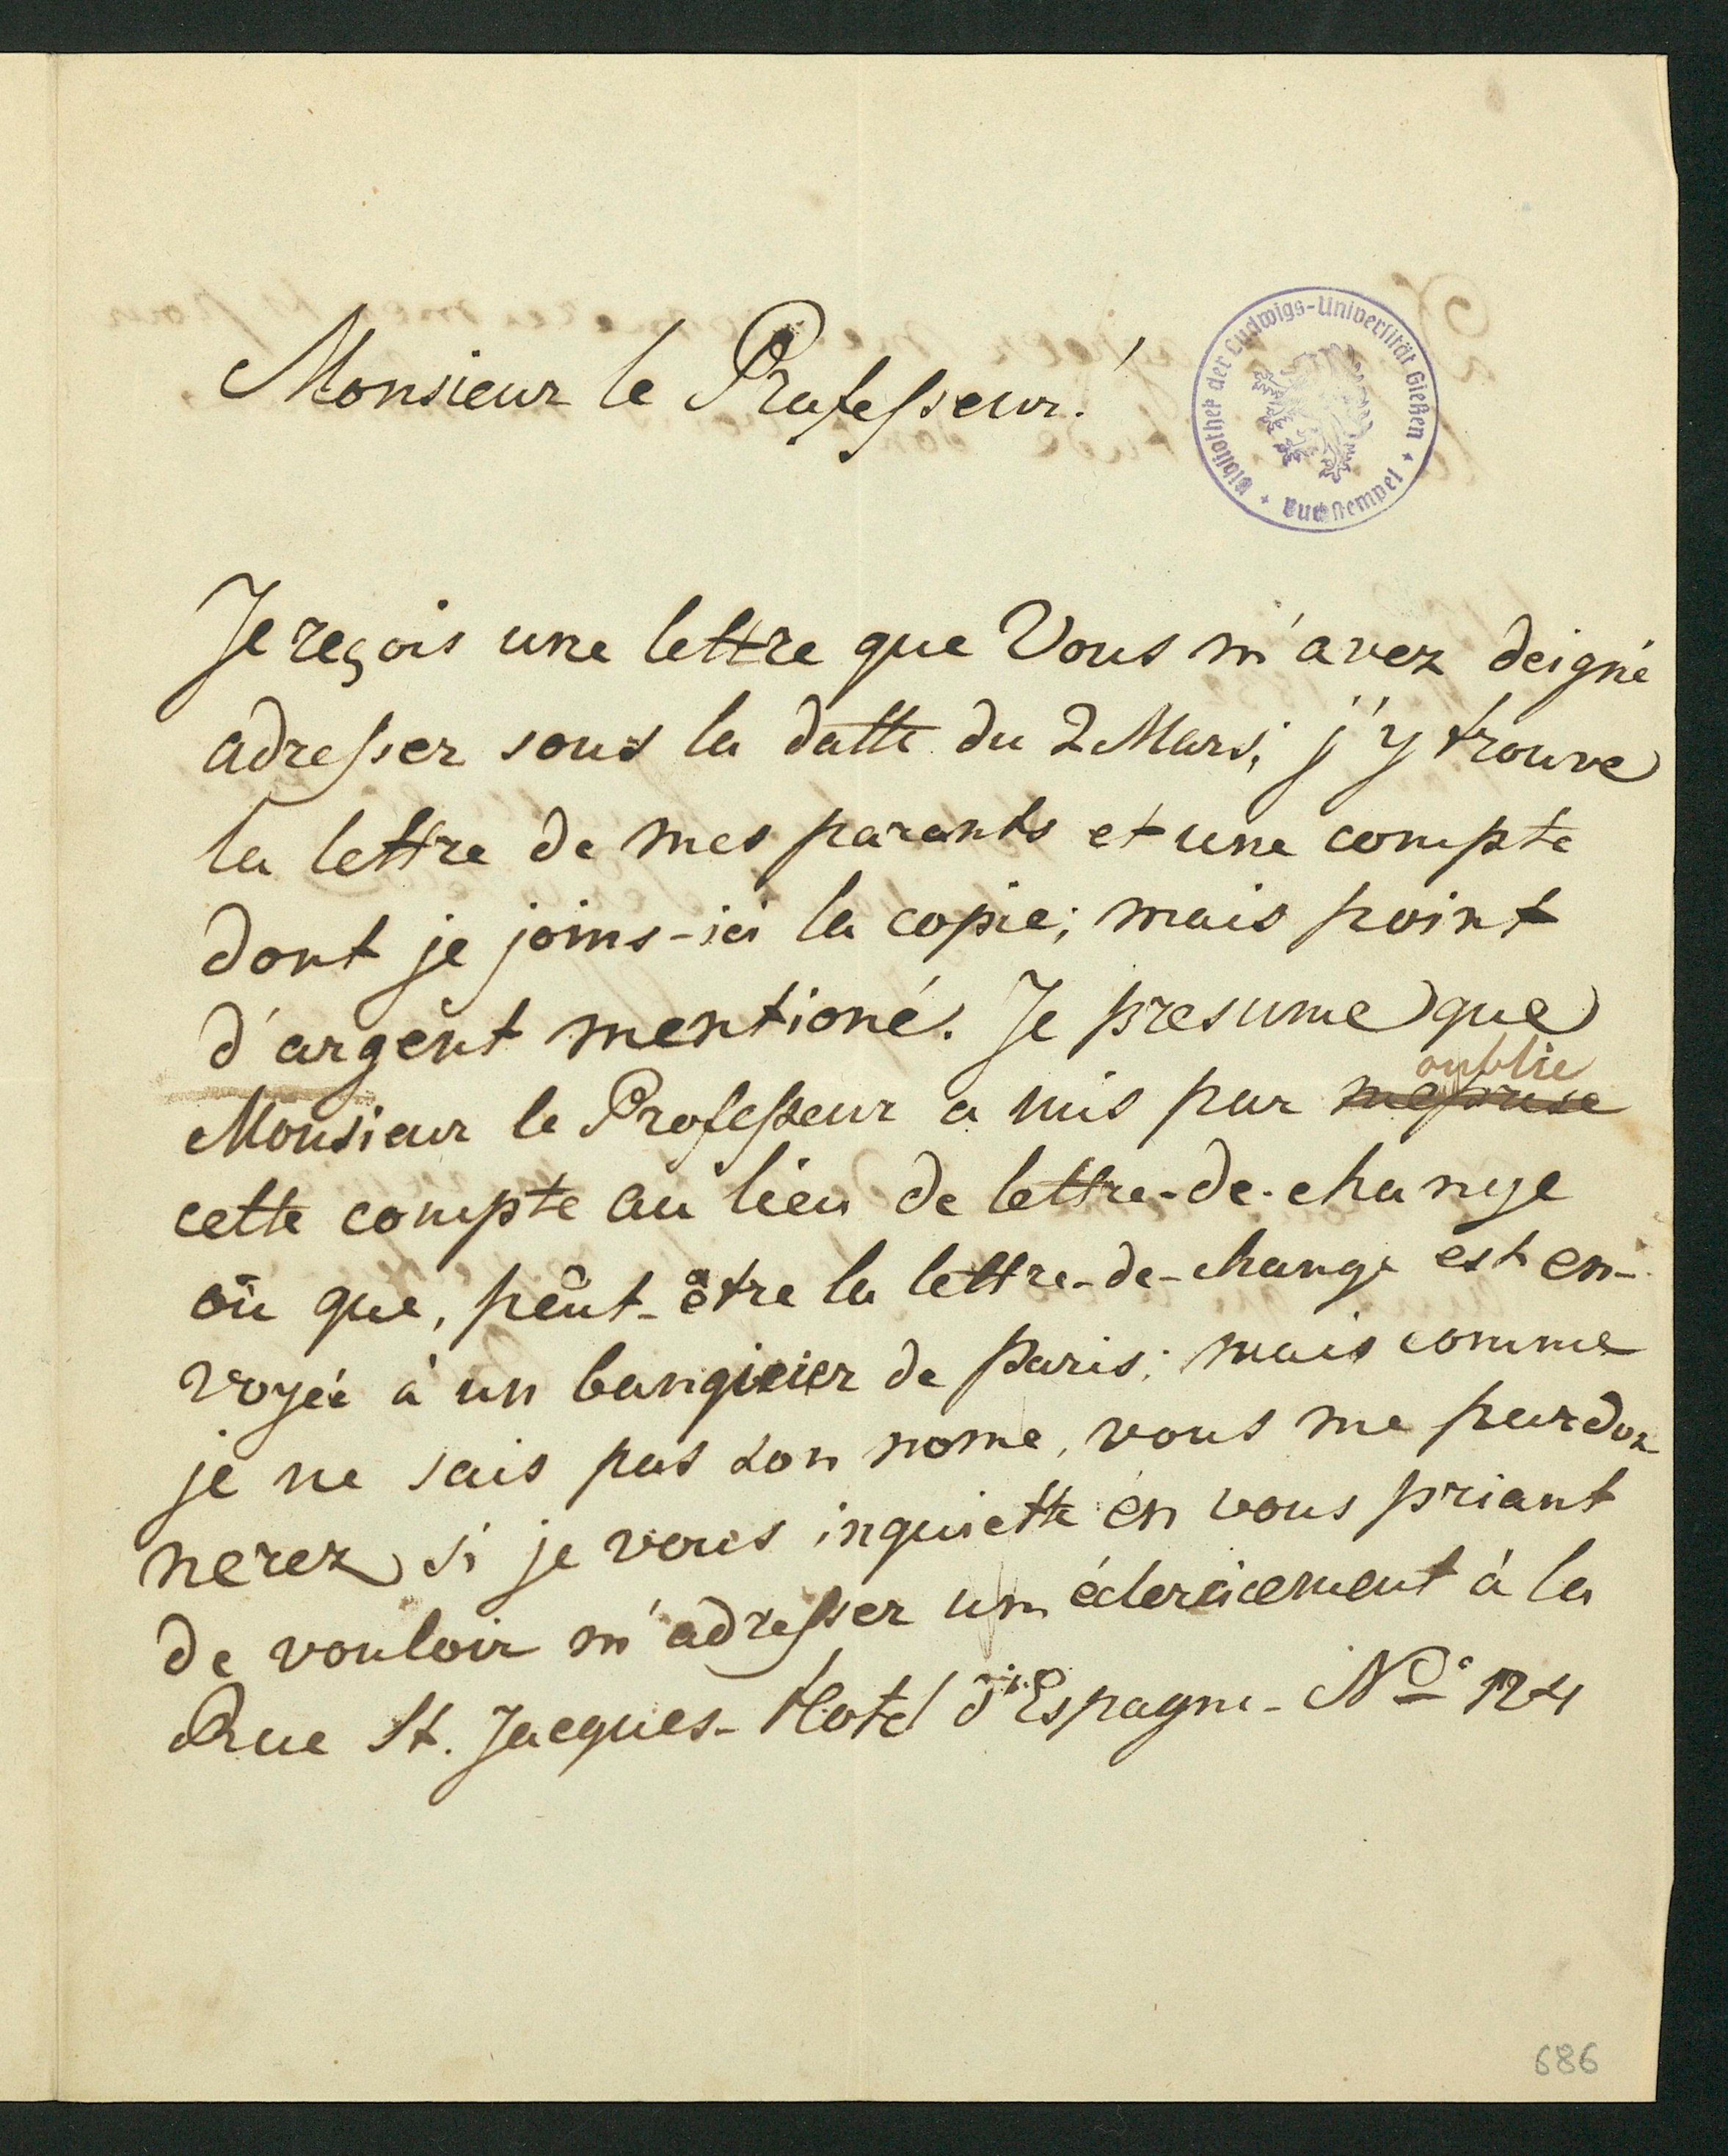 Monsieur le Professeur!
Bibliothek der Ludwigs-Universität Gießen + Buchstempel +
Je reçois une lettre que Vous m'avez deigné
adresser sous la datte du 2 Mars; j'y trouve
la lettre de mes parants et une compte
dont je joins-ici la copie; mais point
d'argent mentioné. Je presume que
oublie
Monsieur le Professeur a mis par meprise
cette compte au lieu de lettre-de-change
où que, peût-être la lettre-de-change est en-
voyée à un banquier de paris; mais comme
je ne sais pas son nome, vous me pardon
nerez si je vous inquiette én vous priant
de vouloir m'adresser un éclercicement à la
Rue St. Jacques- Hotel d'Espagne- No 124
686